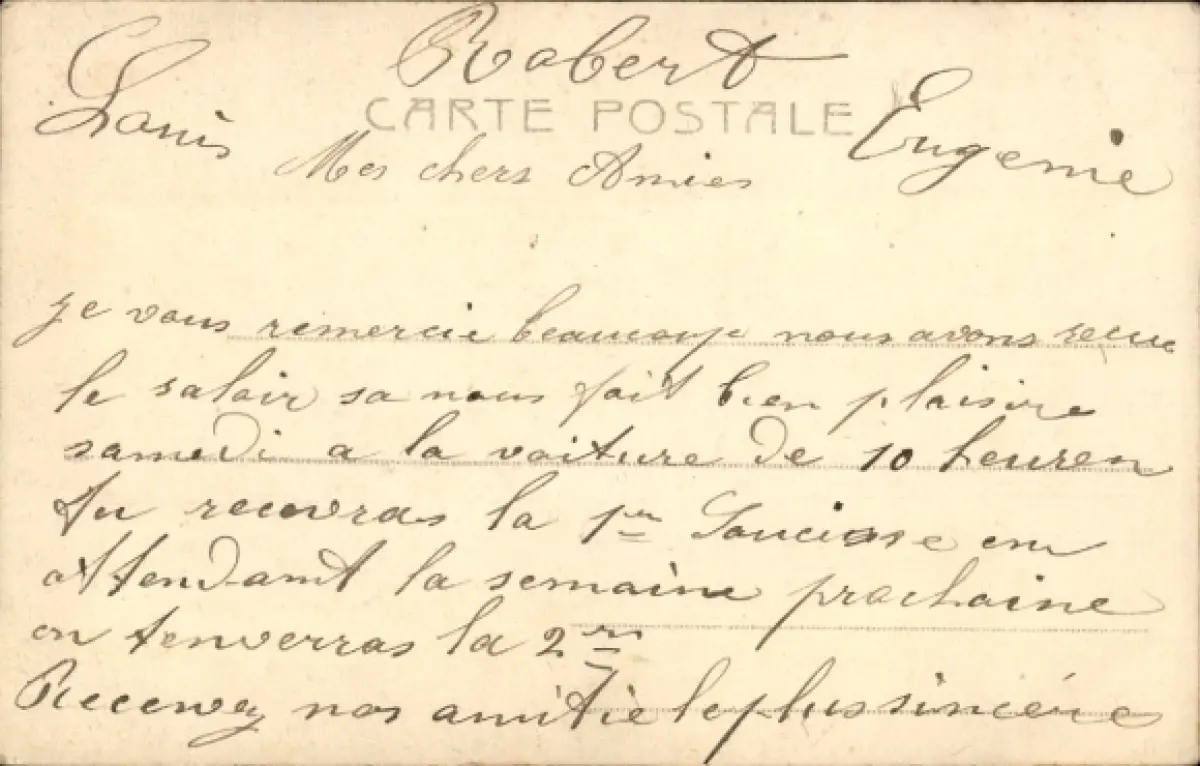 Robert
Louis
CARTE POSTALE
Eugenie
Mes chers Amies
je vous remercie beaucoup nous avons recue
le salair sa nous fait bien plaisire
samedi a la voiture de 10 heures
tu recevras la 1re Saucisse en
attendant la semaine prochaine
on tenverras la 2re
Recevez nos amitie le plus sincére